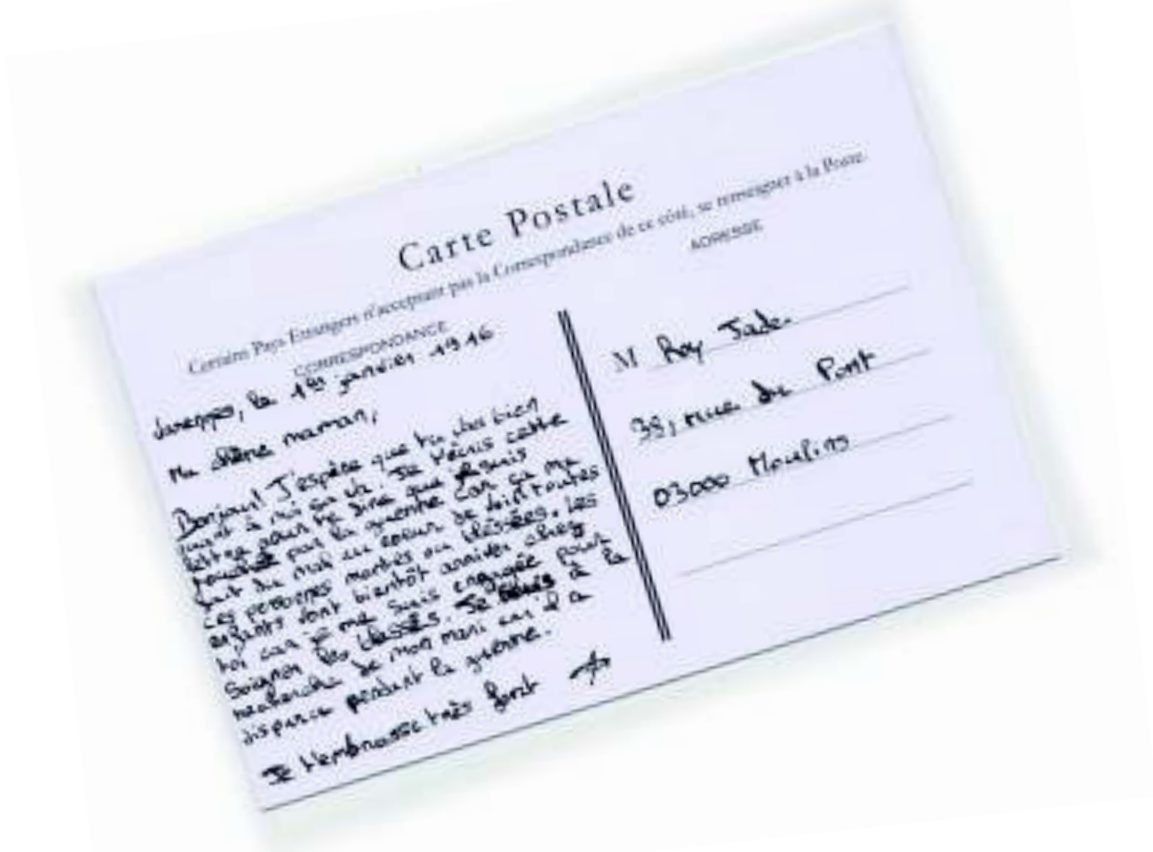 Carte Postale
Certains Pays Etrangers n'acceptant pas la Correspondance de ce côté, se renseigner à la Poste.
CORRESPONDANCE
ADRESSE
le 1er janvier 1916
Ma chère maman,
Bonjour! J'espère que tu vas bien
quant à moi ça va. Je t'écris cette
lettre pour te dire que je suis
par la guerre car ça me
fait du mal au coeur de voir toutes
ces personnes mortes ou blessées. Les
enfants vont bientôt arriver chez
toi car je me suis engagée pour
soigner les blessés. Je à la
recherche de mon mari car il a
disparu pendant la guerre.
Je t'embrasse très fort
M Roy Jade.
38, rue du Pont
03000 Moulins